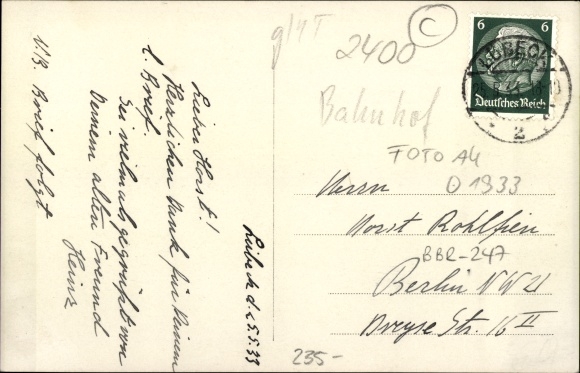 Lübeck d. 5.5.33
Lieber Horst!
Herzlichen Dank für Deinen
l. Brief.
Sei vielmals gegrüßt von
Deinem alten Freund
Heinz
N.B. Brief folgt
2400
C
Bahnhof
FOTO A4
O 1933
6 6
Deutsches Reich
LÜBECK
2
Herrn
Horst Rohlfien
BBR-247
Berlin NW 21
Dreyse Str. 16 II
235-